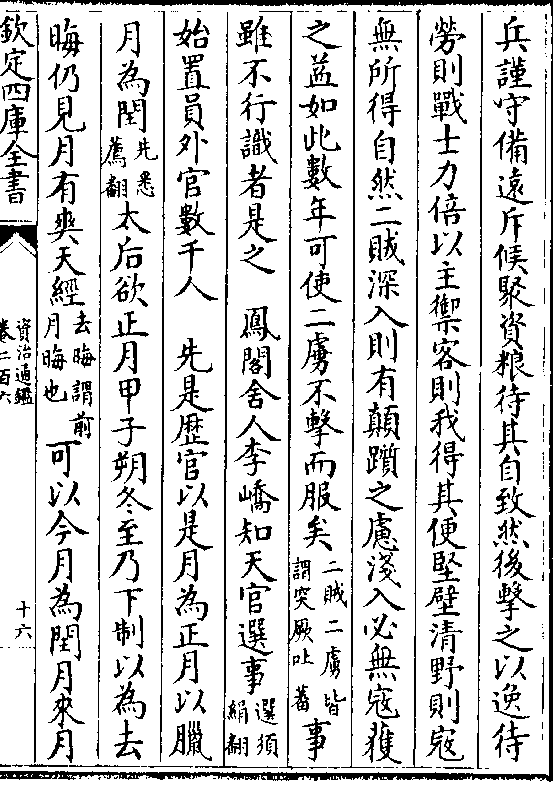 兵謹守備遠斥候聚資粮待其自致然後擊之以逸待
勞則戰士力倍以主禦客則我得其便堅壁清野則寇
無所得自然二賊深入則有顛躓之慮淺入必無寇獲
之益如此數年可使二虜不擊而服矣二賊二虜皆謂突厥吐蕃事
雖不行識者是之　鳳閣舍人李嶠知天官選事選須絹翻
始置員外官數千人　先是歴官以是月為正月以臘
月為閏先悉薦翻太后欲正月甲子朔冬至乃下制以為去
晦仍見月有爽天經去晦謂前月晦也可以今月為閏月來月
欽定四庫全書
資治通鑑
卷二百六
十六